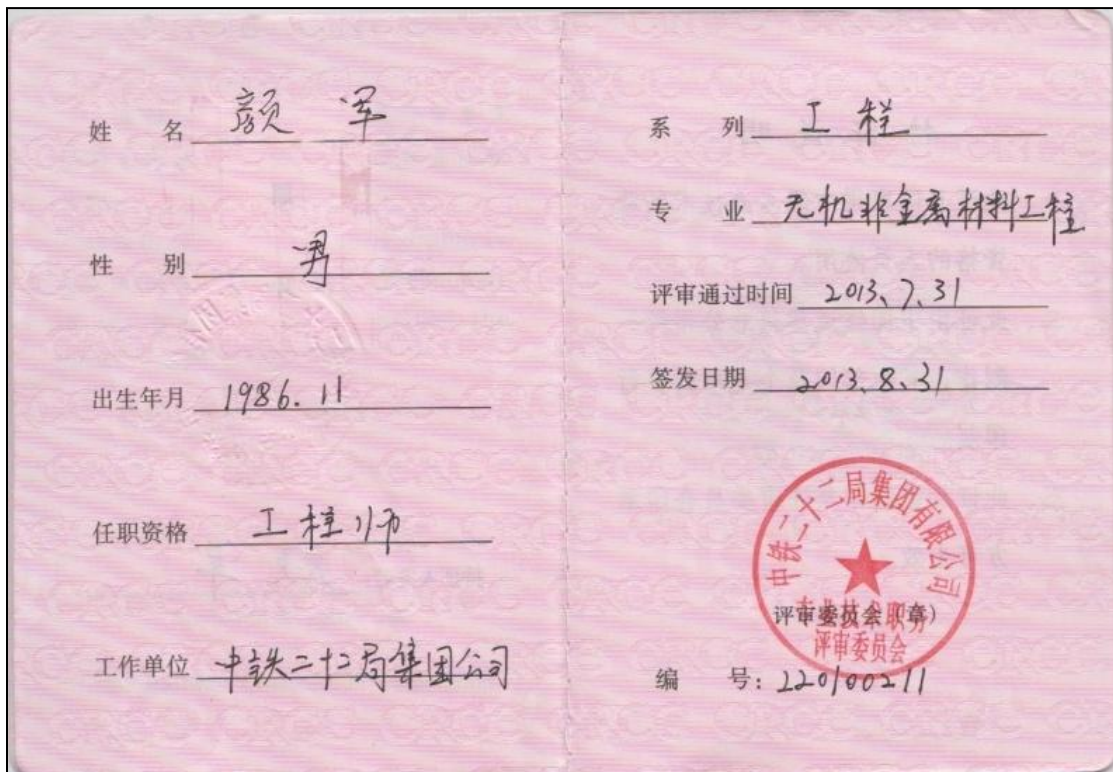 姓 名 颜 军
性 别 男
出生年月 1986.11
任职资格 工程师
工作单位 中铁二十二局集团公司
系 列 工程
专 业 无机非金属材料工程
评审通过时间 2013、7、31
签发日期 2013、8、31
中铁二十二局集团有限公司
评审委员会(章)
专业技术职务
评审委员会
编 号:220100211